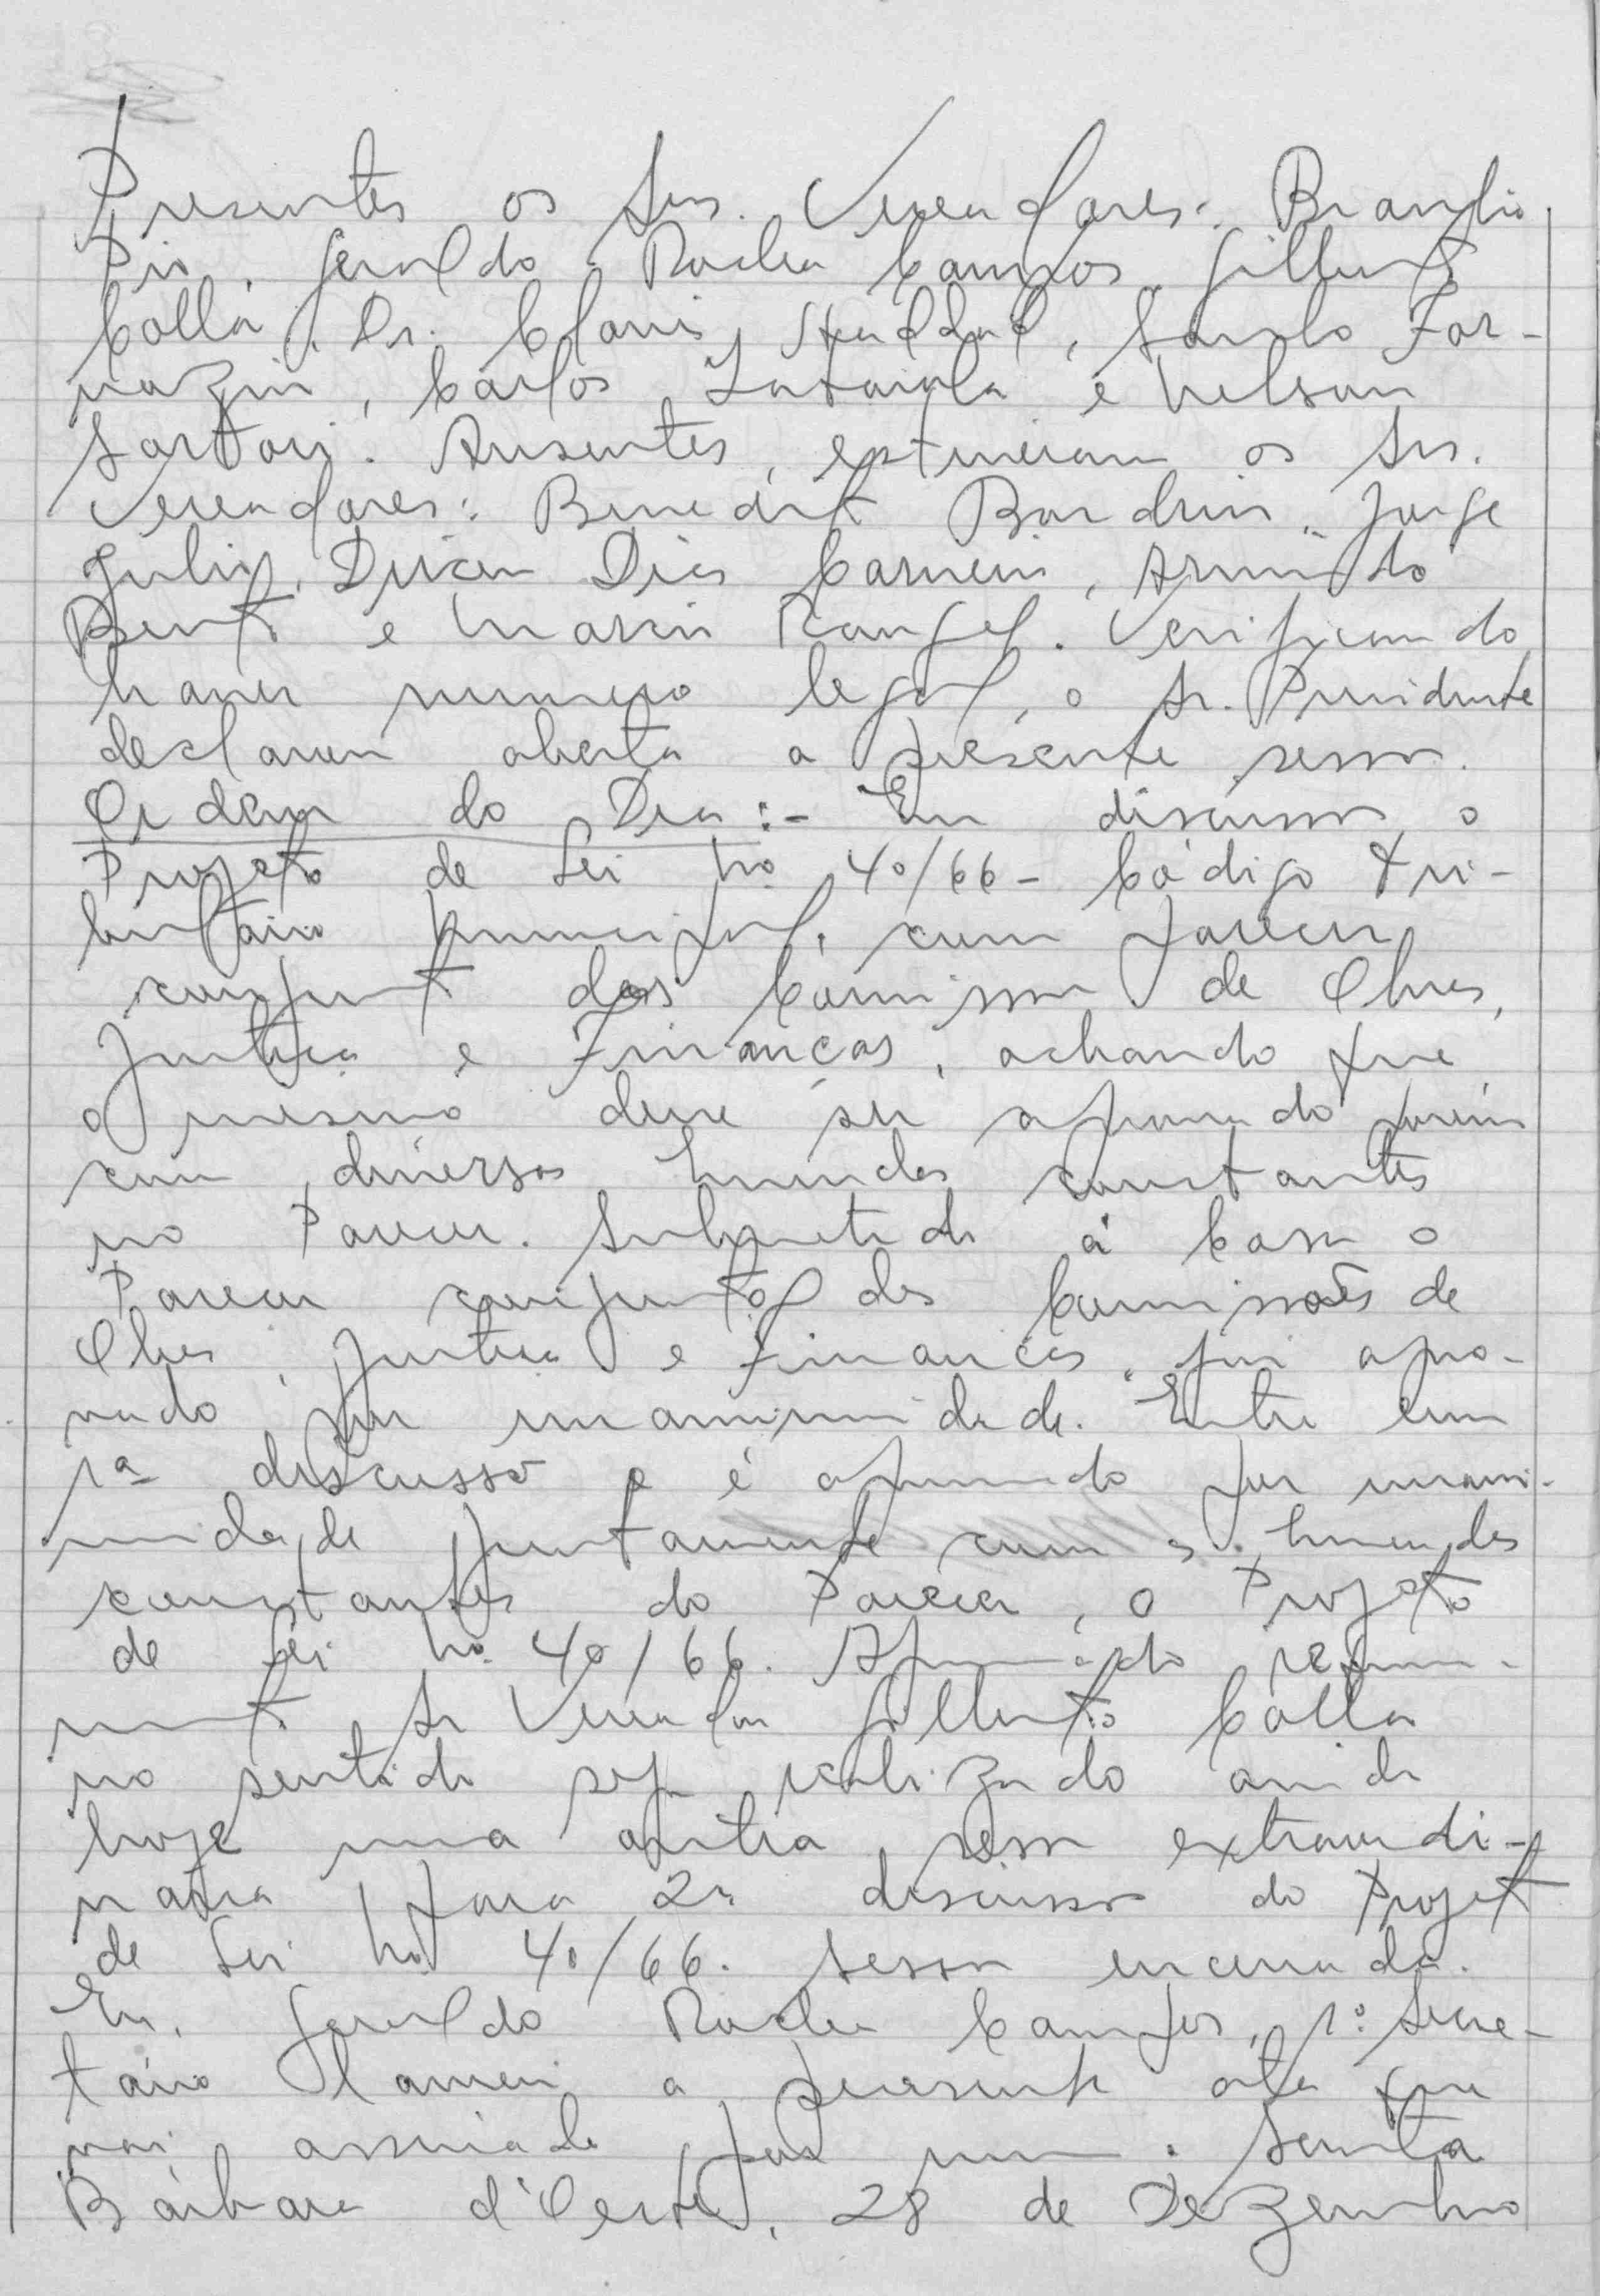 Presentes os Srs. Vereadores: Braulio
Pio, Geraldo Rocha Campos, Gilberto
Colla, Dr. Clovis Haddad, Santo For-
nazin, Carlos Lataiola e Nelson
Sartori. Ausentes, estiveram os Srs.
Vereadores: Benedito Bonduin, Jorge
Julio, Dirceu Dias Carneiro, Armindo
Bento e Marin Rangel. Verificando
haver numero legal, o Sr. Presidente
declarou aberta a presente sessão.
Ordem do Dia:- Em discussão o
Projeto de Lei no 40/66 - Código Tri-
butario Municipal, com parecer
conjunto das Comissão de Obras,
Justiça e Finanças, achando que
o mesmo deve ser aprovado porém
com diversas Emendas constantes
no Parecer. Submetido á Casa o
Parecer conjunto das Comissões de
Obras, Justiça e Finanças, foi apro-
vado por unanimidade. Entra em
1ª discussão e é aprovado por unani-
midade juntamente com as Emendas
constantes do Parecer, o Projeto
de Lei no. 40/66. Aprovado requeri-
mento Sr Vereador Gilberto Colla
no sentido seja realizado ainda
hoje uma outra sessão extraordi-
naria para 2a discussão do Projeto
de Lei no 40/66. Sessão encerrada.
Eu, Geraldo Rocha Campos, 1º Secre-
tário lavrei a presente ata que
vai assinada por mim. Santa
Bárbara d'Oeste, 28 de Dezembro